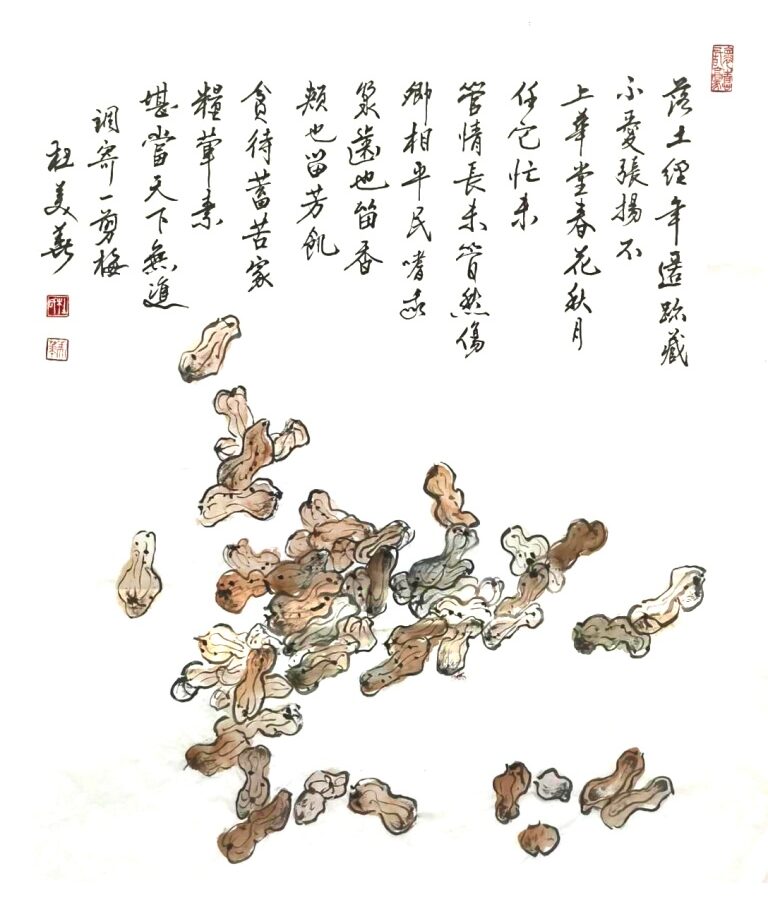 落土經年遁跡藏
不愛張揚不
上華堂春花秋月
任它忙未
管情長未管愁傷
卿相平民嗜亦
眾齒也留香
頰也留芳飢
待蓄苦家
糧葷素
堪當天下無
調寄一剪梅
美